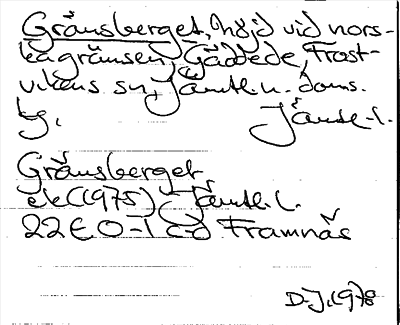 Gränsberget, höjd vid nors-
ka gränsen, Gäddede, Frost-
vikens sn, Jämtl. n. doms.
Jämtl.
Gränsberget
ek (1975) Jämtl. l.
22E 0-1 c-d Framnäs
D.J. 1978